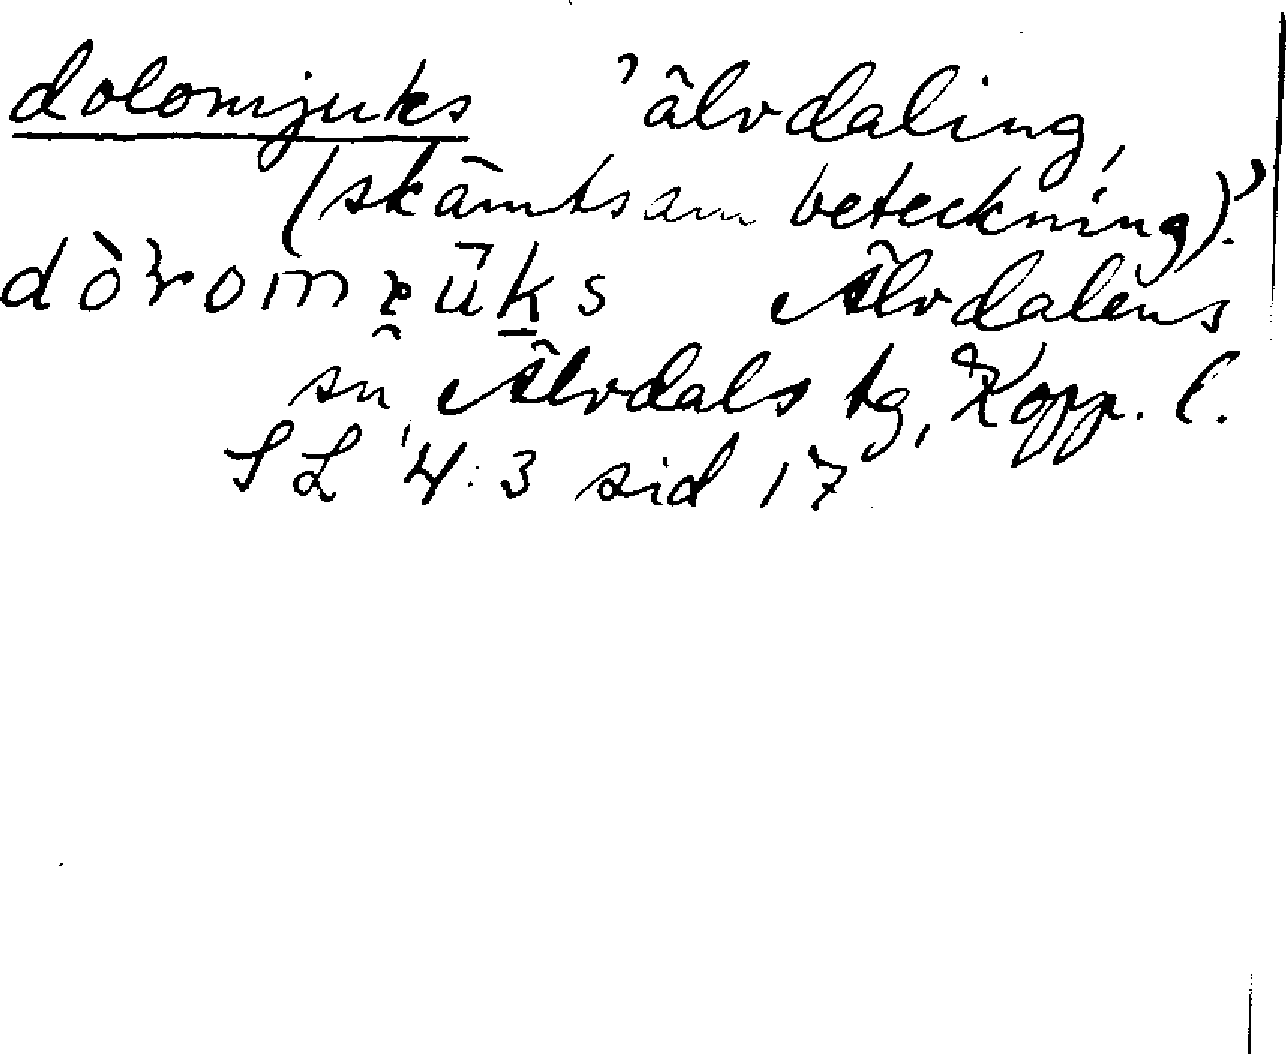 dolomjuks ’älvdaling,
(skämtsam beteckning).’
Älvdalens
sn, Älvdals tg, Kopp. l.
SL 4:3 sid 17